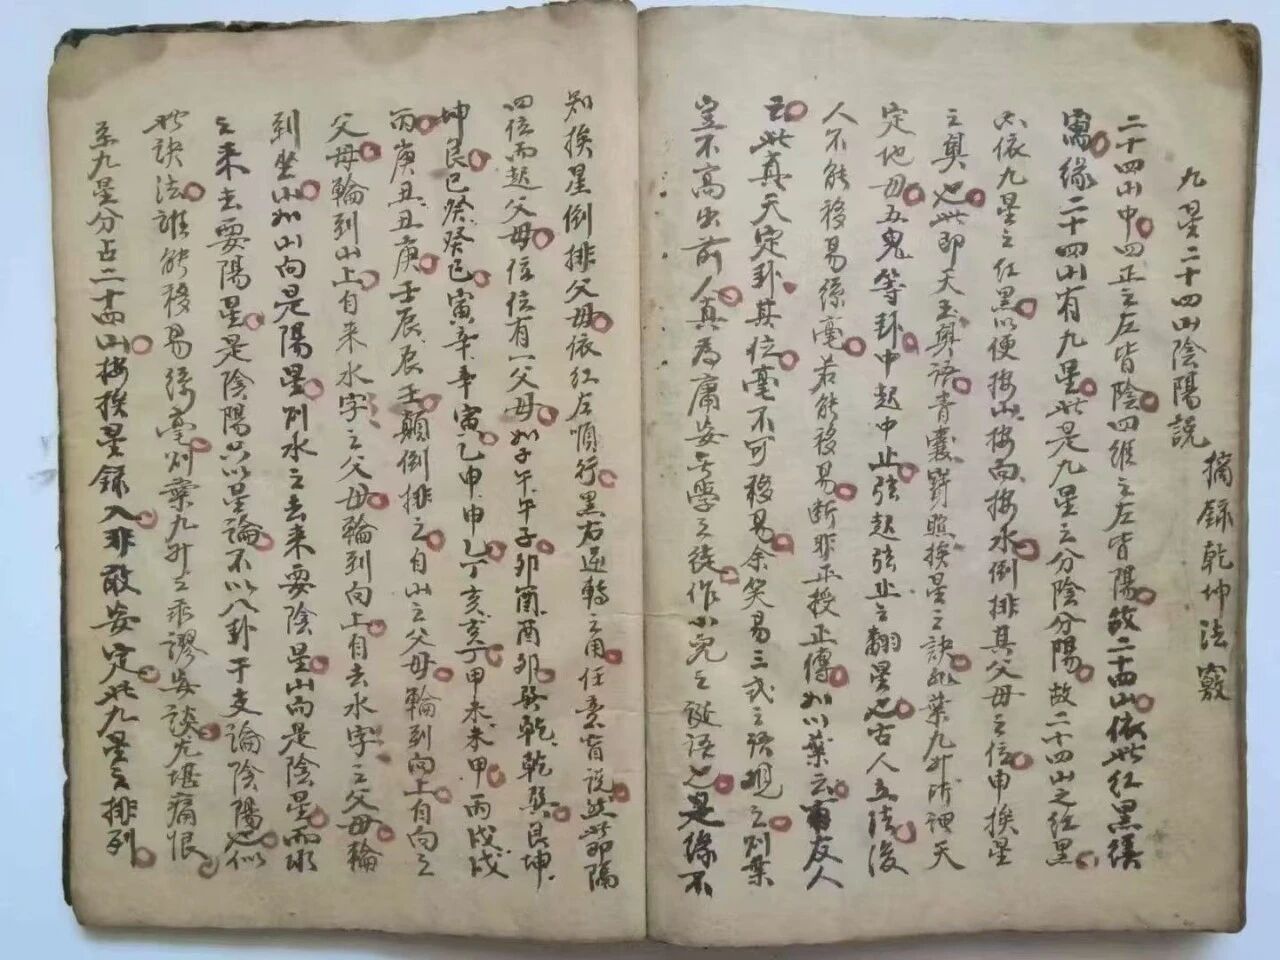 九星二十四山陰陽説 摘録乾坤法竅
二十四山中四正之左皆陰四維之左皆陽故二十四山依此紅黑須
寓緣二十四山有九星此是九星之分陰分陽故二十四山之紅黑
只依九星之紅黑以便挨山挨向挨水倒排其父母之位申挨星
之奧也此即天玉奧語青囊寶照挨星之訣非葉九升所謂天
定他母五鬼等卦中起中止弦起弦止之翻星也古人立法後
人不能移易絲毫若能移易斷非正授正傳如以葉云有友人
云此真天定卦其位毫不可移易余笑易三式之語觀之則葉
豈不高出前人真為庸妄無學之徒作小兒之誕語也是緣不
知挨星倒排父母依紅左順行黑右逆轉之用任意盲說然此即隔
四位而起父母位位有一父母如子午午子卯酉酉卯巽乾乾巽艮坤
坤艮巳癸癸巳寅辛辛寅乙申申乙丁亥亥丁甲未未甲丙戌戌
丙庚丑丑庚壬辰辰壬顛倒排之自山之父母輪到向上自向之
父母輪到山上自來水字之父母輪到向上自去水字之父母輪
到坐山如山向是陽星則水之去來要陰星山向是陰星而水
之來去要陽星是陰陽只以星論不以八卦干支論陰陽也似
此訣法誰能移易絲毫則葉九升之乖謬妄談尤堪痛恨
至九星分占二十四山挨挨星錄入非敢妄定此九星之排列